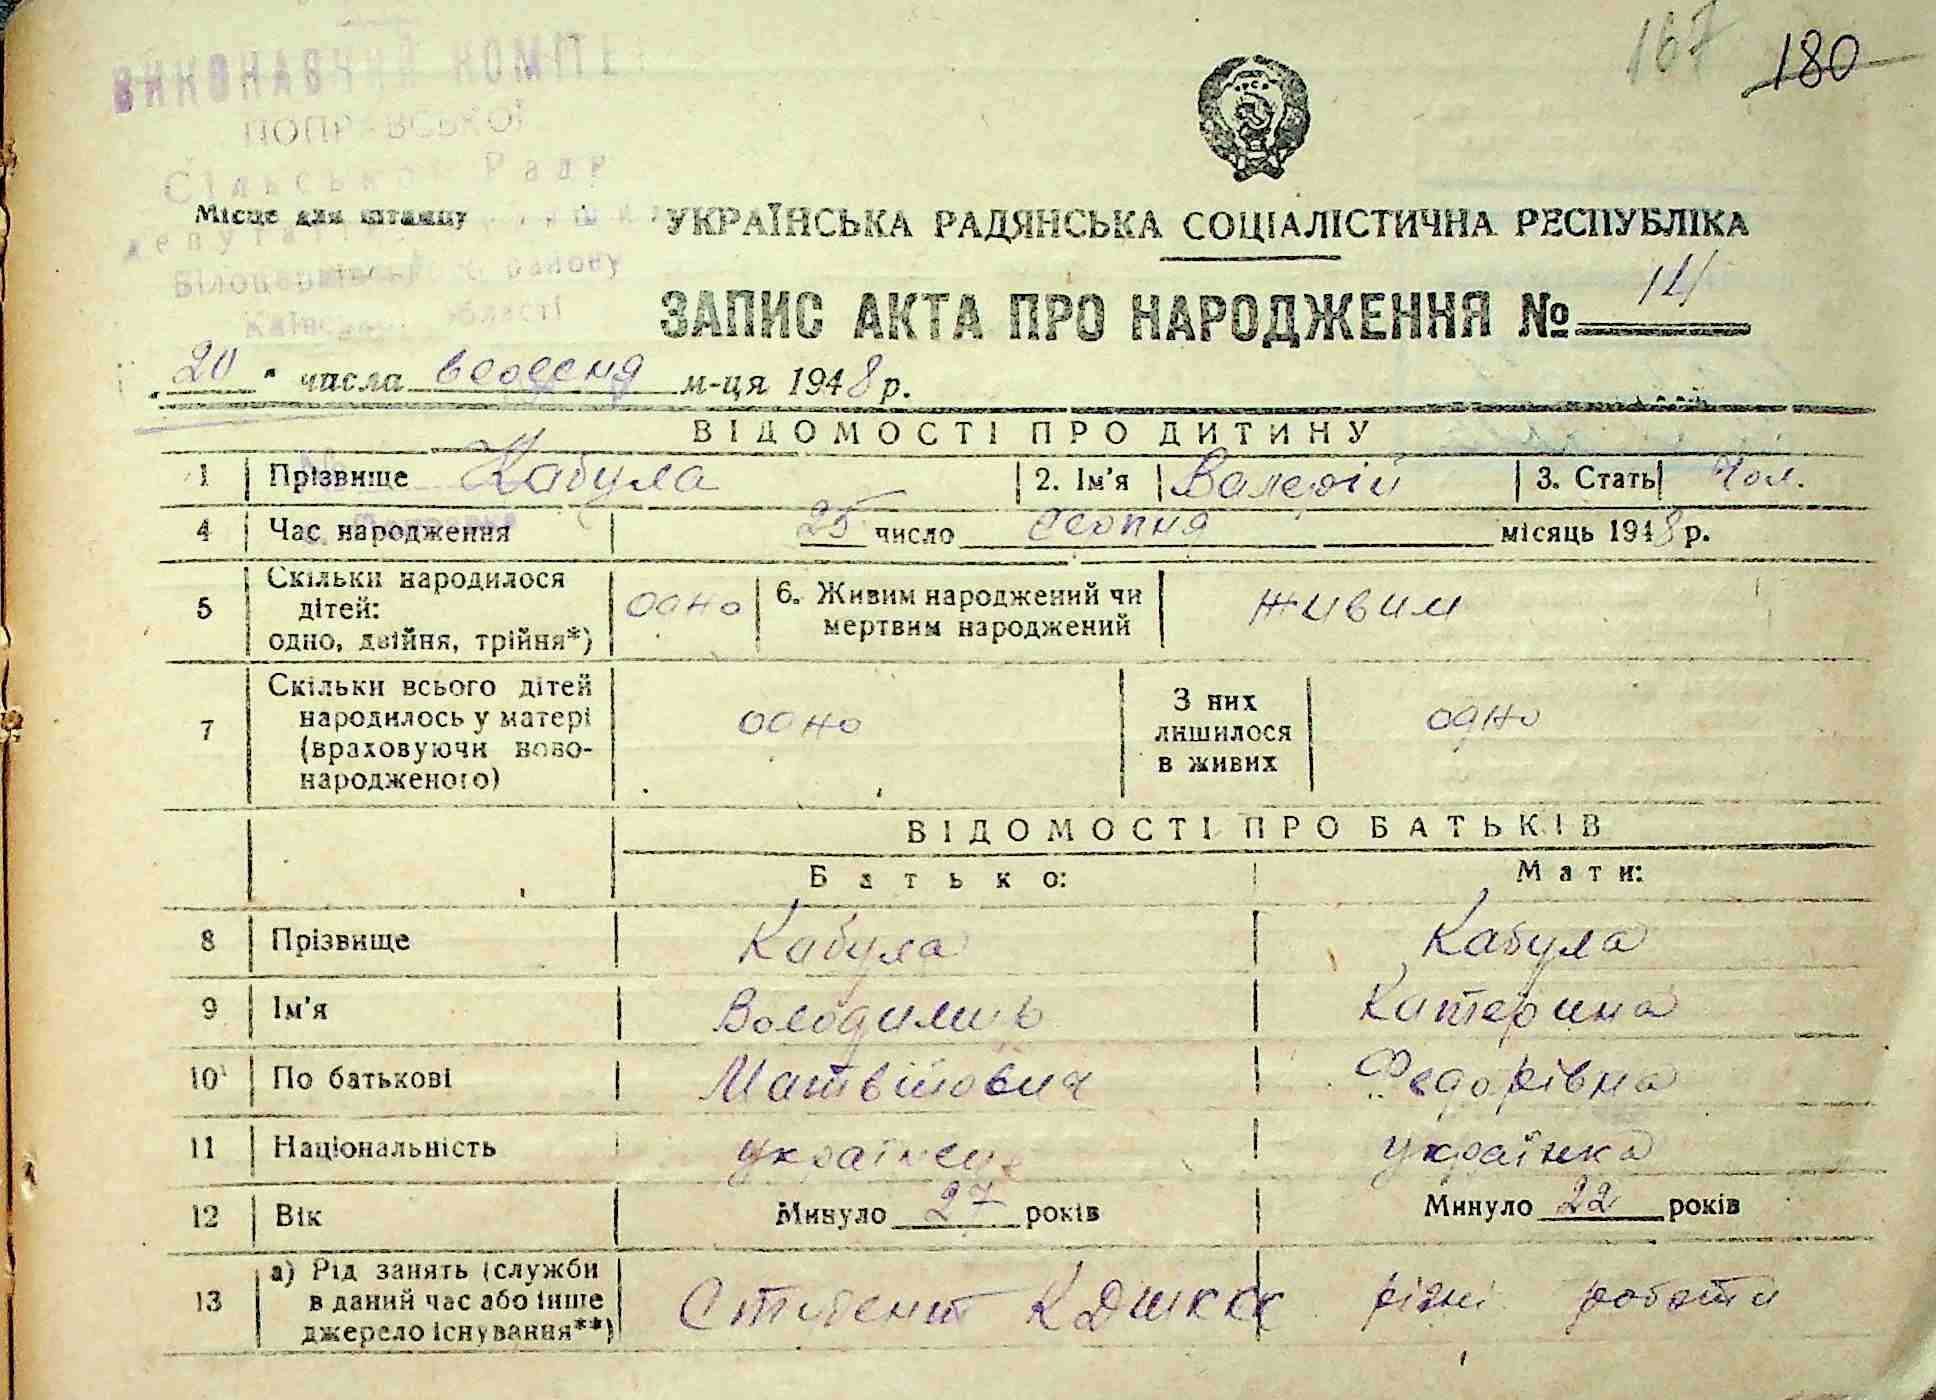 167 180
ВИКОНАВЧИЙ КОМІТЕ
Сільської Ради
Місце для штампу
Білоцерківського району
Київської області
УКРАЇНСЬКА РАДЯНСЬКА СОЦІАЛІСТИЧНА РЕСПУБЛІКА
ЗАПИС АКТА ПРО НАРОДЖЕННЯ №
„20“ числа вересня м-ця 1948 р.
ВІДОМОСТІ ПРО ДИТИНУ
1 Прізвище Кабула 2. Ім'я Валерій 3. Стать Чол.
4 Час народження 25 число серпня місяць 1948 р.
5 Скільки народилося дітей: одно, двійня, трійня*) одно 6. Живим народжений чи мертвим народжений живим
7 Скільки всього дітей народилось у матері (враховуючи ново-народженого) одно З них лишилося в живих одно
ВІДОМОСТІ ПРО БАТЬКІВ
Батько: Мати:
8 Прізвище Кабула Кабула
9 Ім'я Володимир Катерина
10 По батькові Матвійович Федорівна
11 Національність українец українка
12 Вік Минуло 27 років Минуло 22 років
13 а) Рід занять (служби в даний час або інше джерело існування**) Студент різні роботи